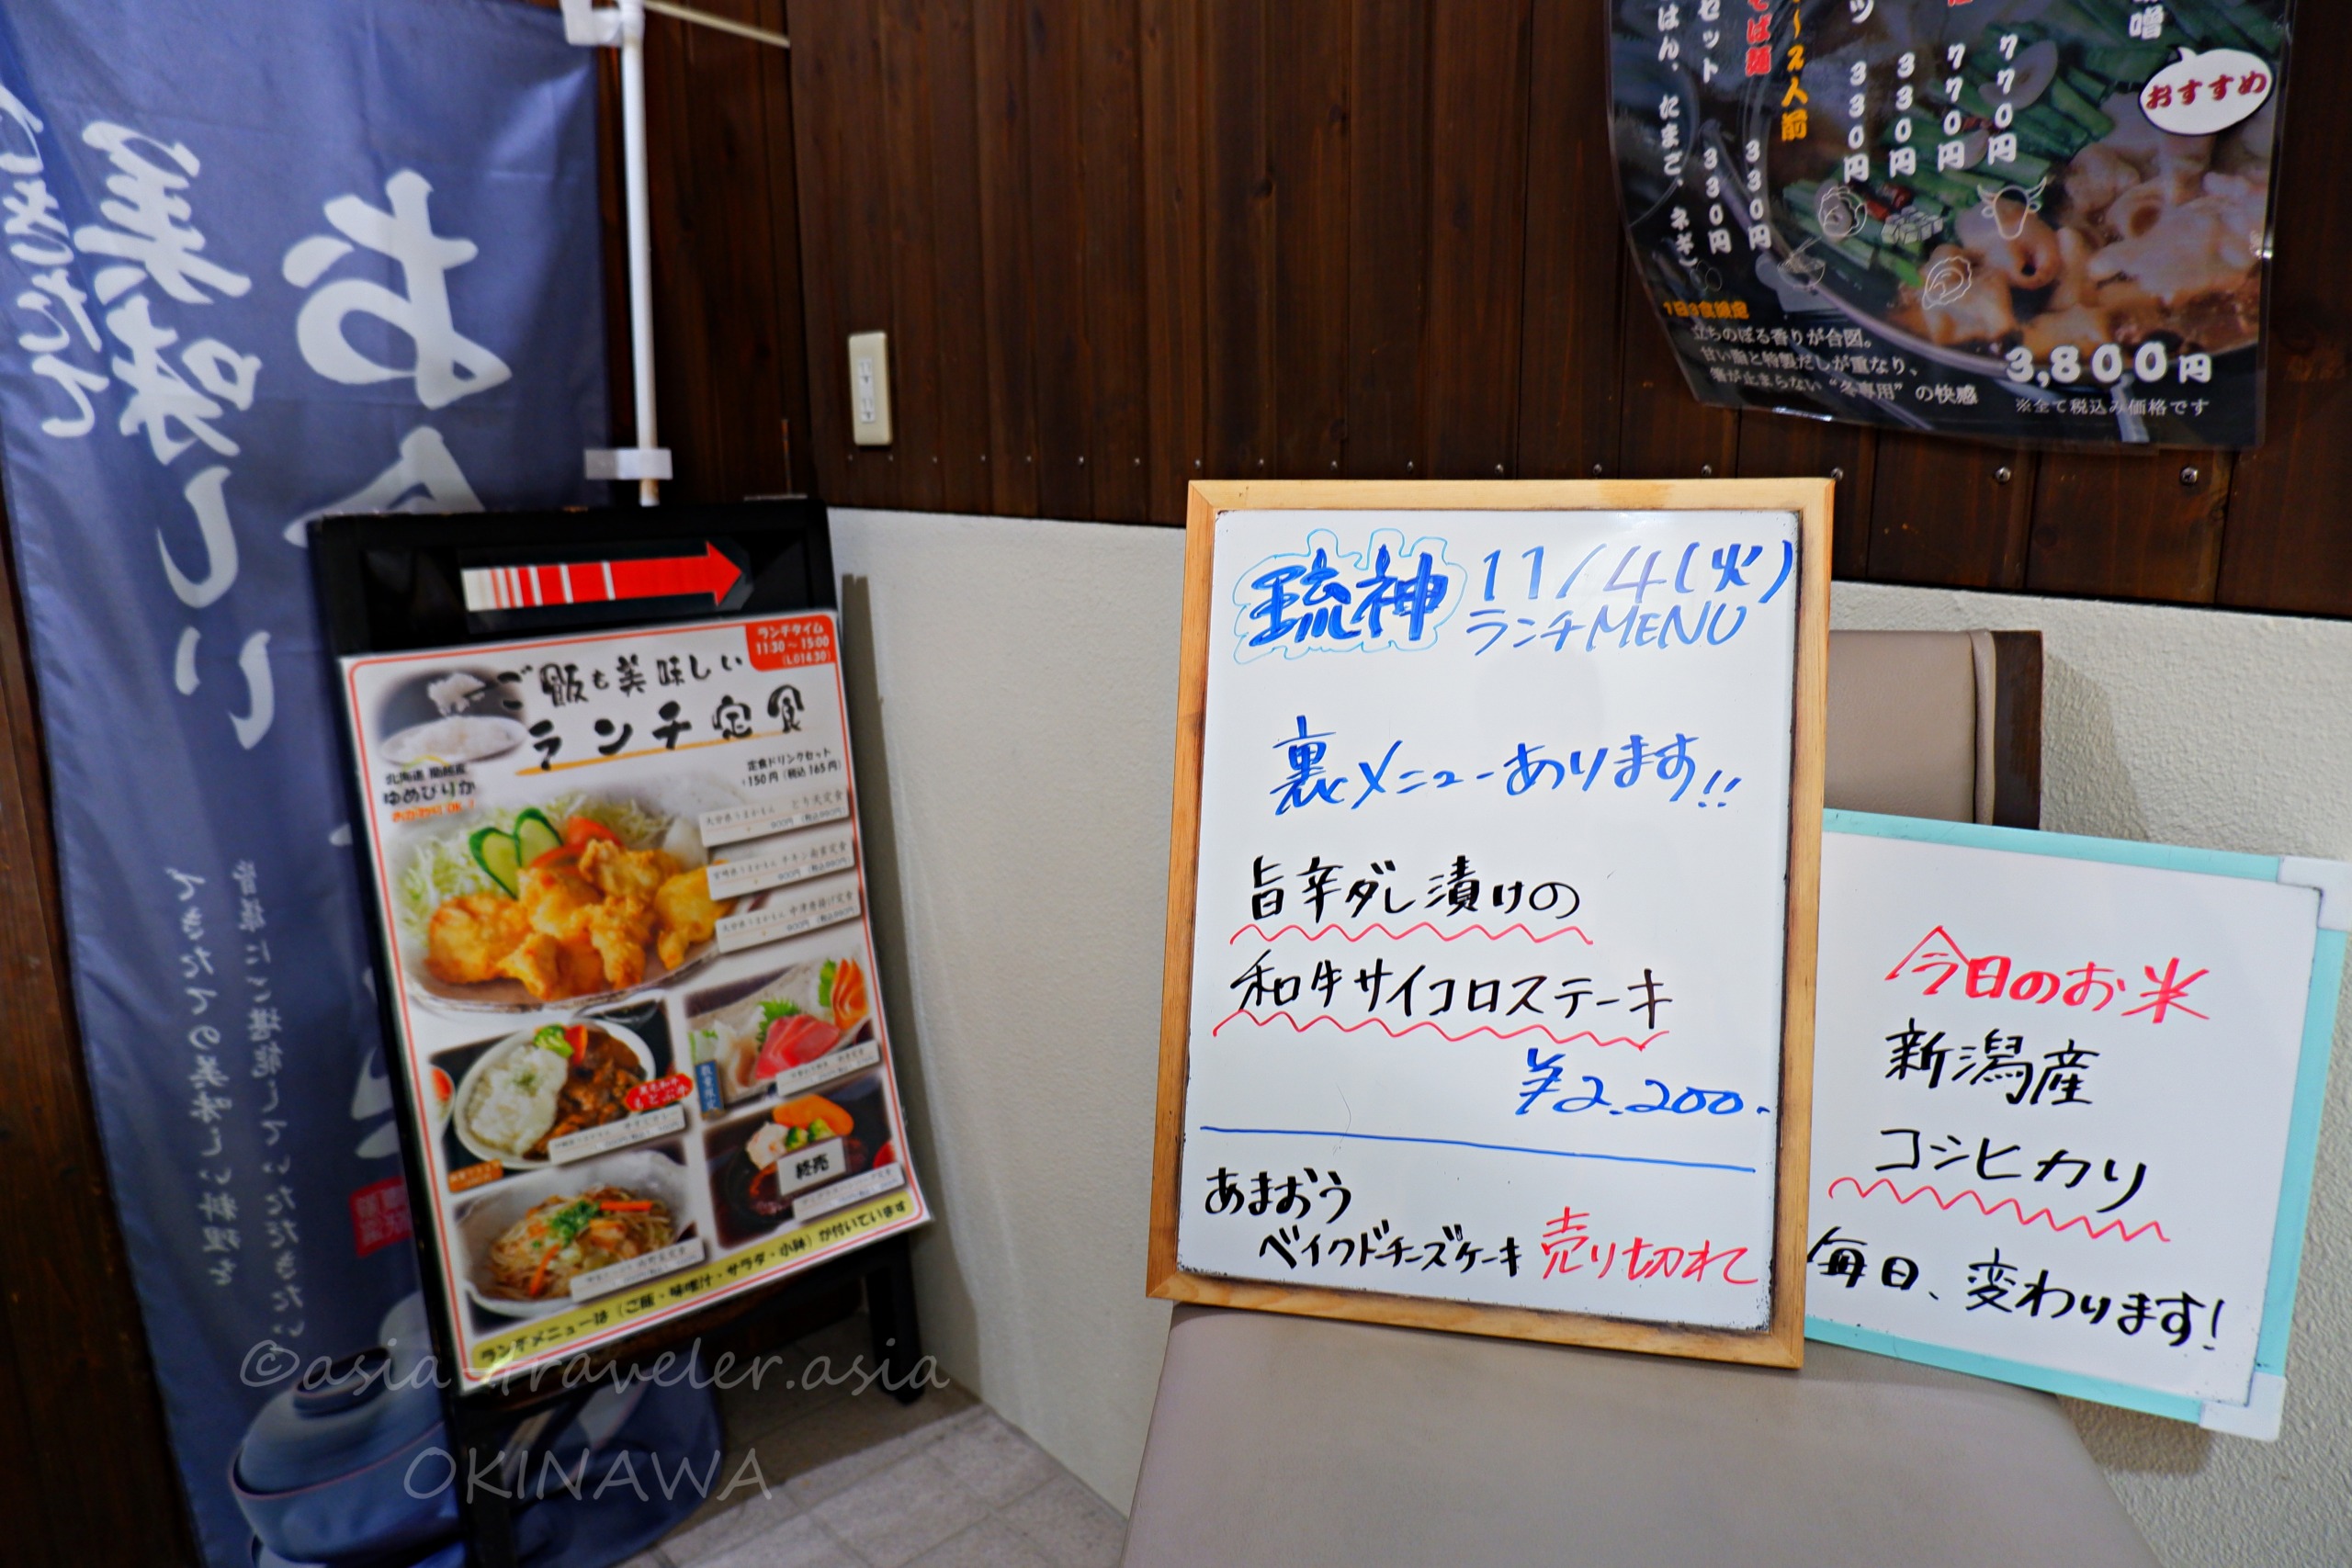 お
美味しい
皆様にご堪能していただきたい
できたての美味しい料理を
ランチタイム
11:30～15:00
(LO14:30)
ご飯も美味しい
ランチ定食
定食ドリンクセット
+150円(税込165円)
ゆめぴりか
おかわりOK!
とり天定食
チキン南蛮定食
数量限定
終売
ランチメニューは(ご飯・味噌汁・サラダ・小鉢)が付いています
琉神 11/4(火)
ランチMENU
裏メニューあります!!
旨辛ダレ漬けの
和牛サイコロステーキ
¥2,200.
あまおう
ベイクドチーズケーキ 売り切れ
今日のお米
新潟産
コシヒカリ
毎日、変わります!
おすすめ
770円
770円
330円
330円
330円
セット 330円
たまご、ネギ)
1日3食限定
立ちのぼる香りが合図。
甘い脂と特製だしが重なり、
箸が止まらない“冬専用”の快感
3,800円
※全て税込み価格です
©asia-traveler.asia
OKINAWA